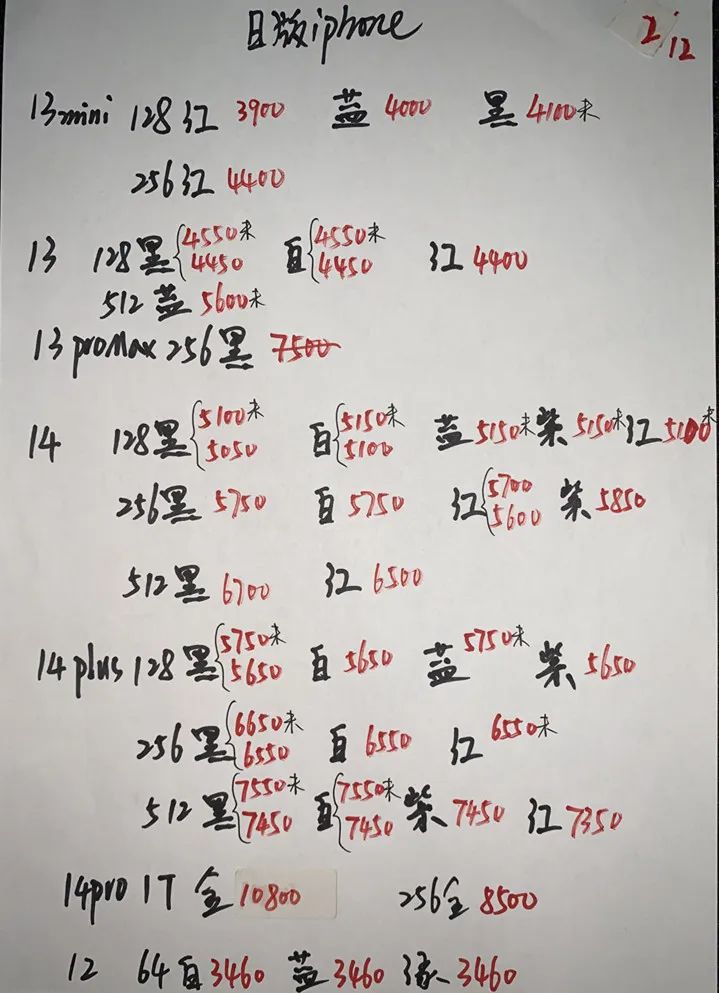 日版iphone
2/12
13mini 128红 3900 蓝 4000 黑 4100未
256红 4400
13 128黑{4550未 4450 白{4550未 4450 红 4400
512 蓝 5600未
13 proMax 256黑 7500
14 128黑{5100未 5050 白{5150未 5100 蓝 5150未 紫 5150未 红 5100未
256黑 5750 白 5750 红{5700 5600 紫 5850
512黑 6700 红 6500
14 plus 128黑{5750未 5650 白 5650 蓝 5750未 紫 5650
256黑{6650未 6550 白 6550 红 6550未
512黑{7550未 7450 白{7550未 7450 紫 7450 红 7350
14pro 1T 金 10800 256金 8500
12 64白 3460 蓝 3460 绿 3460